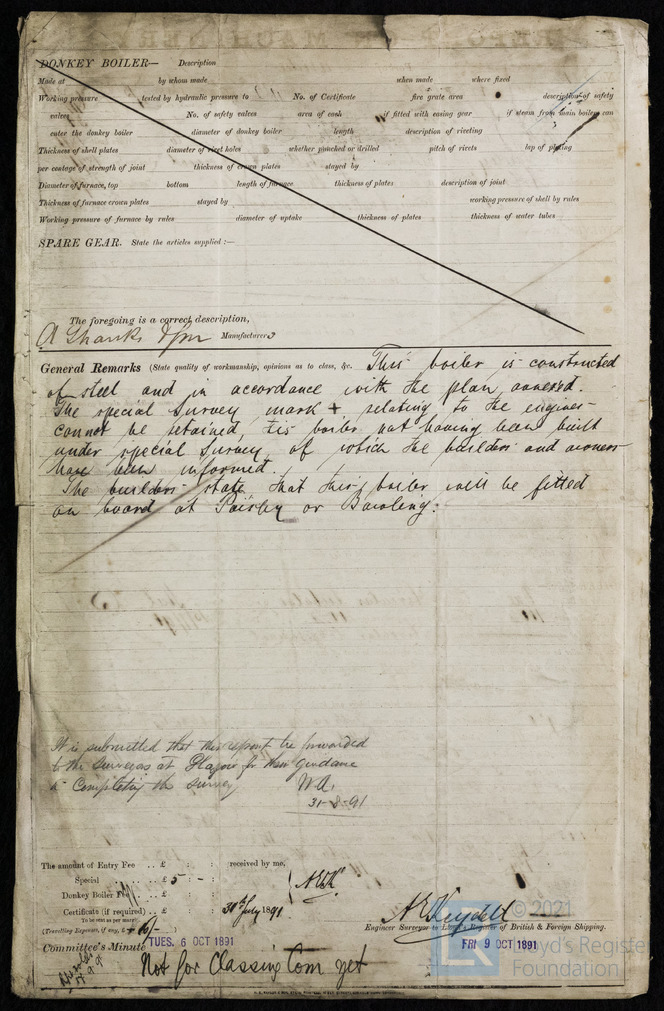 DONKEY BOILER— Description
Made at by whom made when made where fixed
Working pressure tested by hydraulic pressure to No. of Certificate fire grate area description of safety
valves No. of safety valves area of each if fitted with easing gear if steam from main boilers can
enter the donkey boiler diameter of donkey boiler length description of riveting
Thickness of shell plates diameter of rivet holes whether punched or drilled pitch of rivets lap of plating
per centage of strength of joint thickness of crown plates stayed by
Diameter of furnace, top bottom length of furnace thickness of plates description of joint
Thickness of furnace crown plates stayed by working pressure of shell by rules
Working pressure of furnace by rules diameter of uptake thickness of plates thickness of water tubes
SPARE GEAR. State the articles supplied :—
The foregoing is a correct description,
A Shanks & Son Manufacturers
General Remarks (State quality of workmanship, opinions as to class, &c. This boiler is constructed
of steel and in accordance with the plan annexed.
The special Survey mark +, relating to the engines
cannot be retained, this boiler not having been built
under special Survey, of which the builders and owners
have been informed.
The builders state that this boiler will be fitted
on board at Paisley or Bowling.
It is submitted that this report be forwarded
to the Surveyors at Glasgow for their guidance
in completing the survey
W.A.
31-8-91
The amount of Entry Fee .. £ : : received by me,
Special .. £ 5 : - :
Donkey Boiler Fee .. £ : :
Certificate (if required) .. £ : : 30th July 1891
To be sent as per margin
(Travelling Expenses, if any, £
Engineer Surveyor to Lloyd's Register of British & Foreign Shipping.
Committee's Minute TUES. 6 OCT 1891 FRI 9 OCT 1891
Not for Classing Com yet
© 2021
Lloyd's Register
Foundation